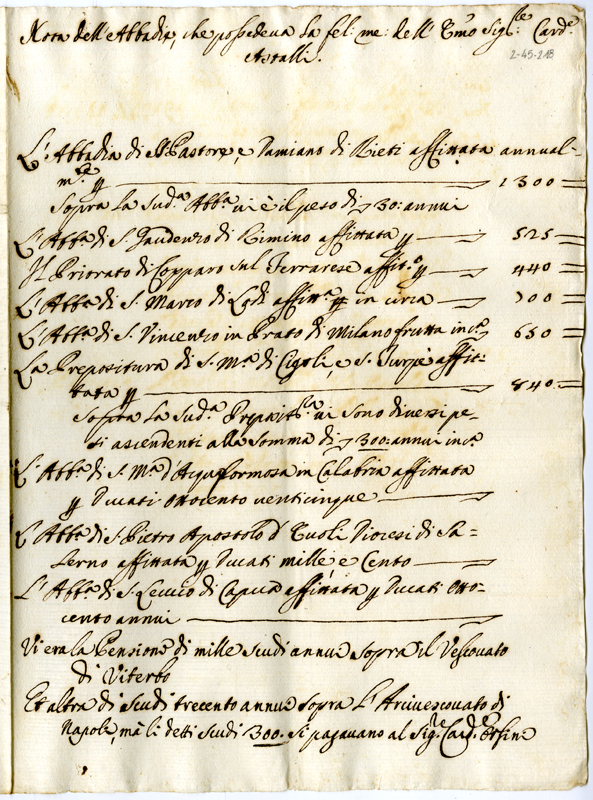 Nota dell'Abbadie, che possedeva la fel: me: dell' Emo Sigle: Carde:
Astalli.
2-45-218
L' Abbadia di S. Pastore, e Damiano di Rieti affittata annual-
mte p 1300
Sopra la sudа Abba vi è il peso di 30: annui
L' Abba di S. Gaudenzio di Rimino affittata p 525
Il Priorato di Copparo sul Ferrarese affitto p 440
L' Abba di S. Marco di Lodi affitta p in circa 700
L' Abba di S. Vincenzo in Prato di Milano frutta inca 650
La Prepositura di S. Ma di Cigoli, e S. affit:
tata p 840
Sopra la suda vi sono diversi pe-
si ascendenti alla somma di 300: annui inca
L' Abba di S. Ma d'Acquaformosa in Calabria affittata
p Ducati ottocento venticinque
L' Abba di S. Pietro Apostolo d' Evoli Diocesi di Sa-
lerno affittata p Ducati mille e Cento
L' Abba di S. Leucio di Capua affittata p Ducati otto-
cento annui
Vi era la Pensione di mille scudi annui sopra il Vescovato
di Viterbo
Et altra di scudi trecento annui sopra l' Arcivescovato di
Napoli, mà li detti scudi 300: si pagavano al Sigre Card: